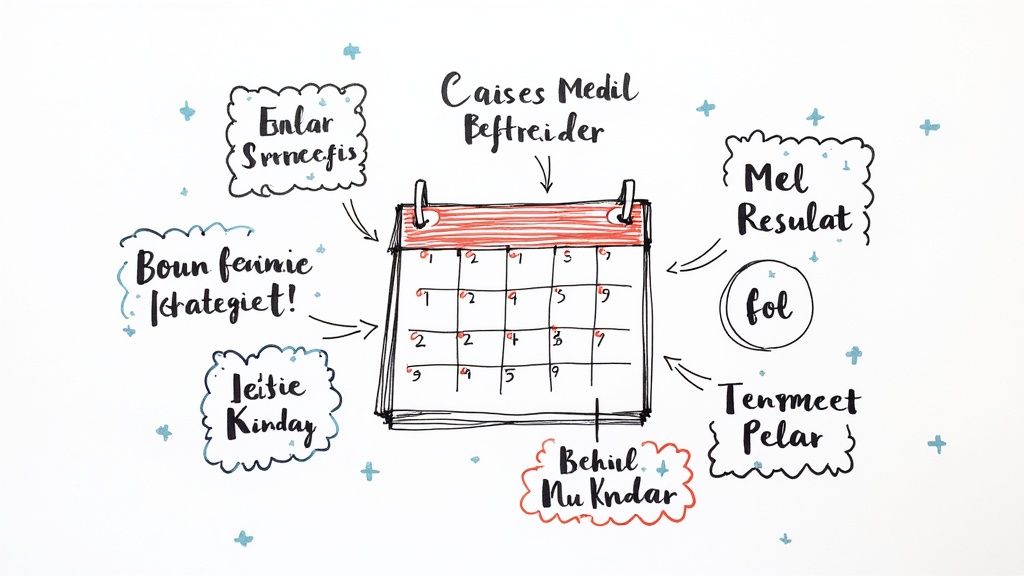 Caises Medil
Beftreider
Enlar
Srrnecfis
Mel
Resulat
Boun feninie
fol
Jeitie
Kinday
Tenrmeet
Pelar
Behiul
Mu Kndar
1 2 1 5
1 2 9 5 9
2 2 4 7
9 5 9